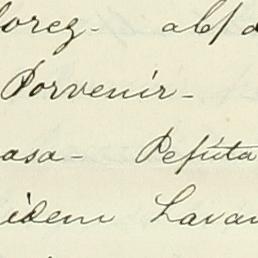 lorez- alf d
Porvenir-
asa- Pepita
idem Lavan